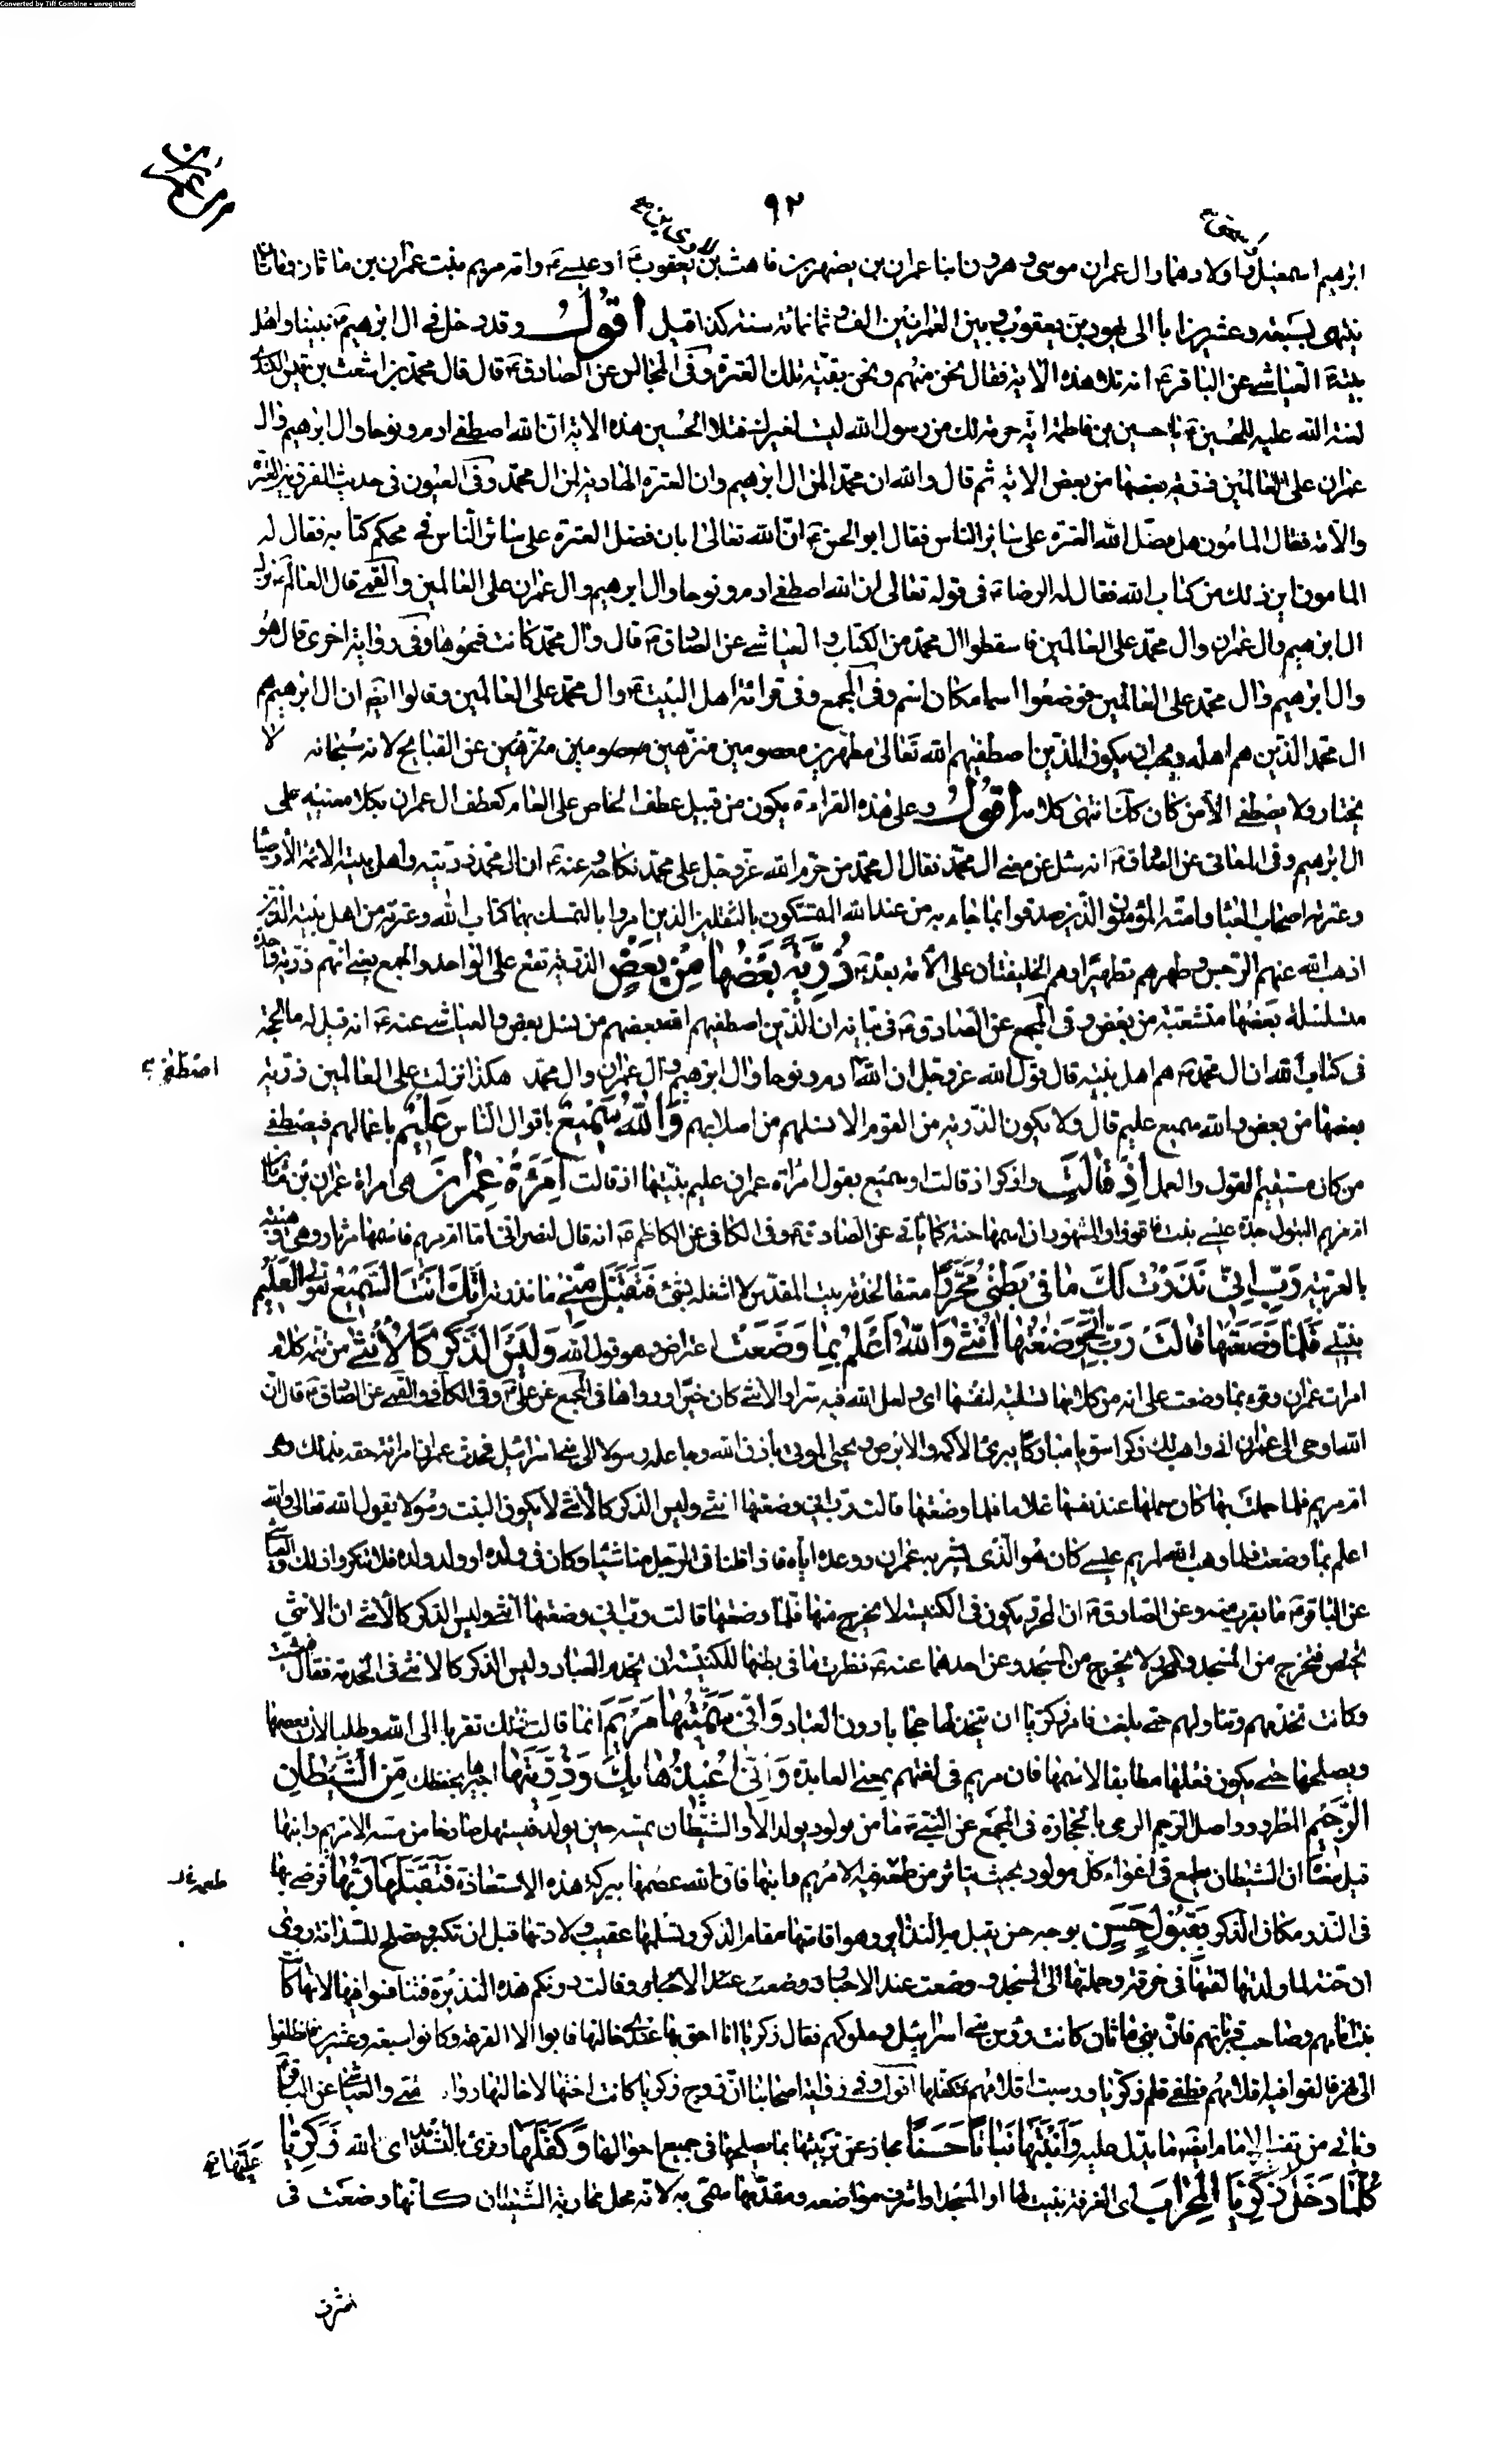 Converted by Tiff Combine - unregistered
٩٢
ابرهيم اسمعيل و اولادهما وال عمران موسى وهرون ابنا عمران بن يصهر بن فاهث بن يعقوب او عيسى و امه مريم بنت عمران بن ماثان
ينتهي بسبعة وعشرين ابا الى يهود بن يعقوب و بين العمرانين الف و ثمانمائة سنة كذا قيل اقول وقد دخل في ال ابرهيم نبينا واهل
بيته العياشي عن الباقر ع انه تلا هذه الاية فقال نحن منهم ونحن بقية تلك العترة وفي المجالس عن الصادق قال قال محمد بن اشعث بن قيس الكندي
لعنة الله عليه للحسين يا حسين بن فاطمة اية حرمة لك من رسول الله ليست لغيرك فتلا الحسين هذه الاية ان الله اصطفى ادم ونوحا وال ابرهيم وال
عمران على العالمين ذرية بعضها من بعض الاية ثم قال والله ان محمدا لمن ال ابرهيم وان العترة الهادية لمن ال محمد وفي العيون في حديث الفرق بين العترة
والامة فقال المامون هل فضل الله العترة على سائر الناس فقال ابو الحسن ان الله تعالى ابان فضل العترة على سائر الناس في محكم كتابه فقال له
المامون اين ذلك من كتاب الله فقال له الرضا ع في قوله تعالى ان الله اصطفى ادم ونوحا وال ابرهيم وال عمران على العالمين والقمي قال العالم نزل
ال ابرهيم وال عمران وال محمد على العالمين فاسقطوا ال محمد من الكتاب والعياشي عن الصادق قال وال محمد كانت فمحوها وفي رواية اخرى قال هو
وال ابرهيم وال محمد على العالمين فوضعوا اسما مكان اسم وفي المجمع وفي قرائة اهل البيت وال محمد على العالمين وقالوا ايضا ان ال ابرهيم هم
ال محمد الذين هم اهله ويجب ان يكون الذين اصطفيهم الله تعالى مطهرين معصومين منزهين عن القبايح لانه سبحانه لا
يختار ولا يصطفي الا من كان كذلك انتهى كلامه اقول وعلى هذه القراءة يكون من قبيل عطف الخاص على العام كعطف ال عمران بكلا معنييه على
ال ابرهيم وفي المعاني عن الصادق انه سئل عن معنى ال محمد فقال ال محمد من حرم الله عز وجل على محمد نكاحه وعنه ان ال محمد ذريته واهل بيته الائمة الاوصياء
وعترته اصحاب العبا وامته المؤمنون الذين صدقوا بما جاء به من عند الله المتمسكون بالثقلين الذين امروا بالتمسك بهما كتاب الله وعترته من اهل بيته الذين
اذهب الله عنهم الرجس وطهرهم تطهيرا وهم الخليفتان على الامة بعده ذرية بعضها من بعض الذرية تقع على الواحد والجمع يعني انهم ذرية واحدة
متسلسلة بعضها متشعبة من بعض وفي المجمع عن الصادق في بيانه ان الذين اصطفيهم الله بعضهم من نسل بعض والعياشي عنه انه قيل له ما الحجة
في كتاب الله ان ال محمد هم اهل بيته قال قول الله عز وجل ان الله ادم ونوحا وال ابرهيم وال عمران وال محمد هكذا نزلت على العالمين ذرية
اصطفى
بعضها من بعض والله سميع عليم قال ولا يكون الذرية من القوم الا نسلهم من اصلابهم والله سميع باقوال الناس عليم باعمالهم فيصطفي
من كان مستقيم القول والعمل اذ قالت واذكر اذ قالت او سميع بقول امراة عمران عليم بنيتها اذ قالت امرأة عمران هي امراة عمران بن ماثان
ام مريم البتول جدة عيسى بنت فاقوذا والمشهور ان اسمها حنة كما ياتي عن الصادق وفي الكافي عن الكاظم انه قال لنصراني اما ام مريم فاسمها مرثا وهي
بالعربية رب اني نذرت لك ما في بطني محررا معتقا لخدمة بيت المقدس لا اشغله بشئ فتقبل مني ما نذرته انك انت السميع العليم
بنيتي فلما وضعتها قالت رب اني وضعتها انثى والله اعلم بما وضعت اعتراض وهو قول الله وليس الذكر كالانثى من تتمة كلام
امرات عمران وقرء بما وضعت على انه من كلامها تسلية لنفسها اي ولعل الله فيه سرا والانثى كان خيرا ورواها في المجمع عن علي وفي الكافي والقمي عن الصادق قال ان
الله اوحى الى عمران اني واهب لك ذكرا سويا مباركا يبرئ الاكمه والابرص ويحيي الموتى باذن الله وجاعله رسولا الى بني اسرائيل فحدث عمران امراته حنه بذلك وهي
ام مريم فلما حملت بها كان حملها عند نفسها غلاما فلما وضعتها قالت رب اني وضعتها انثى وليس الذكر كالانثى لا يكون البنت رسولا يقول الله تعالى والله
اعلم بما وضعت فلما وهب الله لمريم عيسى كان هو الذي بشر به عمران ووعده اياه فاذا قلنا في الرجل منا شيئا وكان في ولده او ولد ولده فلا تنكروا ذلك
عن الباقر ما يقرب منه وعن الصادق ان المحرر يكون في الكنيسة لا يخرج منها فلما وضعتها قالت رب اني وضعتها انثى وليس الذكر كالانثى ان الانثى
تحيض فتخرج من المسجد والمحرر لا يخرج من المسجد وعن احدهما عنه نذرت ما في بطنها للكنيسة ان يخدم العباد وليس الذكر كالانثى في الخدمة فقال
وكانت تخدمهم وتناولهم حتى بلغت فامر زكريا ان تتخذ لها حجابا دون العباد واني سميتها مريم انما قالت ذلك تقربا الى الله وطلبا لان يعصمها
ويصلحها حتى يكون فعلها مطابقا لاسمها فان مريم في لغتهم بمعنى العابدة واني اعيذها بك وذريتها اجيرها بحفظك من الشيطان
الرجيم المطرود واصل الرجم الرمي بالحجارة في المجمع عن النبي ما من مولود يولد الا والشيطان يمسه حين يولد فيستهل صارخا من مسه الا مريم وابنها
قيل معناه ان الشيطان يطمع في اغواء كل مولود بحيث يتاثر من طمعه فيه الا مريم وابنها فان الله عصمها ببركة هذه الاستعاذة فتقبلها ربها فرضي بها
في النذر مكان الذكر بقبول حسن بوجه حسن يقبل به النذاير وهو اقامتها مقام الذكر وتسلمها عقيب ولادتها قبل ان تكبر وتصلح للسدانة روي
ان حنة لما ولدتها لفتها في خرقة وحملتها الى المسجد ووضعت عند الاحبار وقالت دونكم هذه النذيرة فتنافسوا فيها لانها كانت
بنت امامهم وصاحب قربانهم فان بني ماثان كانت رؤس بني اسرائيل وملوكهم فقال زكريا انا احق بها عندي خالتها فابوا الا القرعة وكانوا سبعة وعشرين فانطلقوا
الى نهر فالقوا فيه اقلامهم فطفى قلم زكريا ورسبت اقلامهم فتكفلها اقول وفي رواية اصحابنا ان زوج زكريا كانت اختها لا خالتها رواه القمي والعياشي عن الباقر
وياتي من تفسير الامام ايضا ما يدل عليه وانبتها نباتا حسنا مجاز عن تربيتها بما يصلحها في جميع احوالها وكفلها وقرئ بالتشديد اي الله زكريا
كلما دخل زكريا المحراب اي الغرفة بنيت لها او المسجد او اشرف مواضعه ومقدمها سمي به لانه محل محاربة الشيطان كانها وضعت في
اشرف